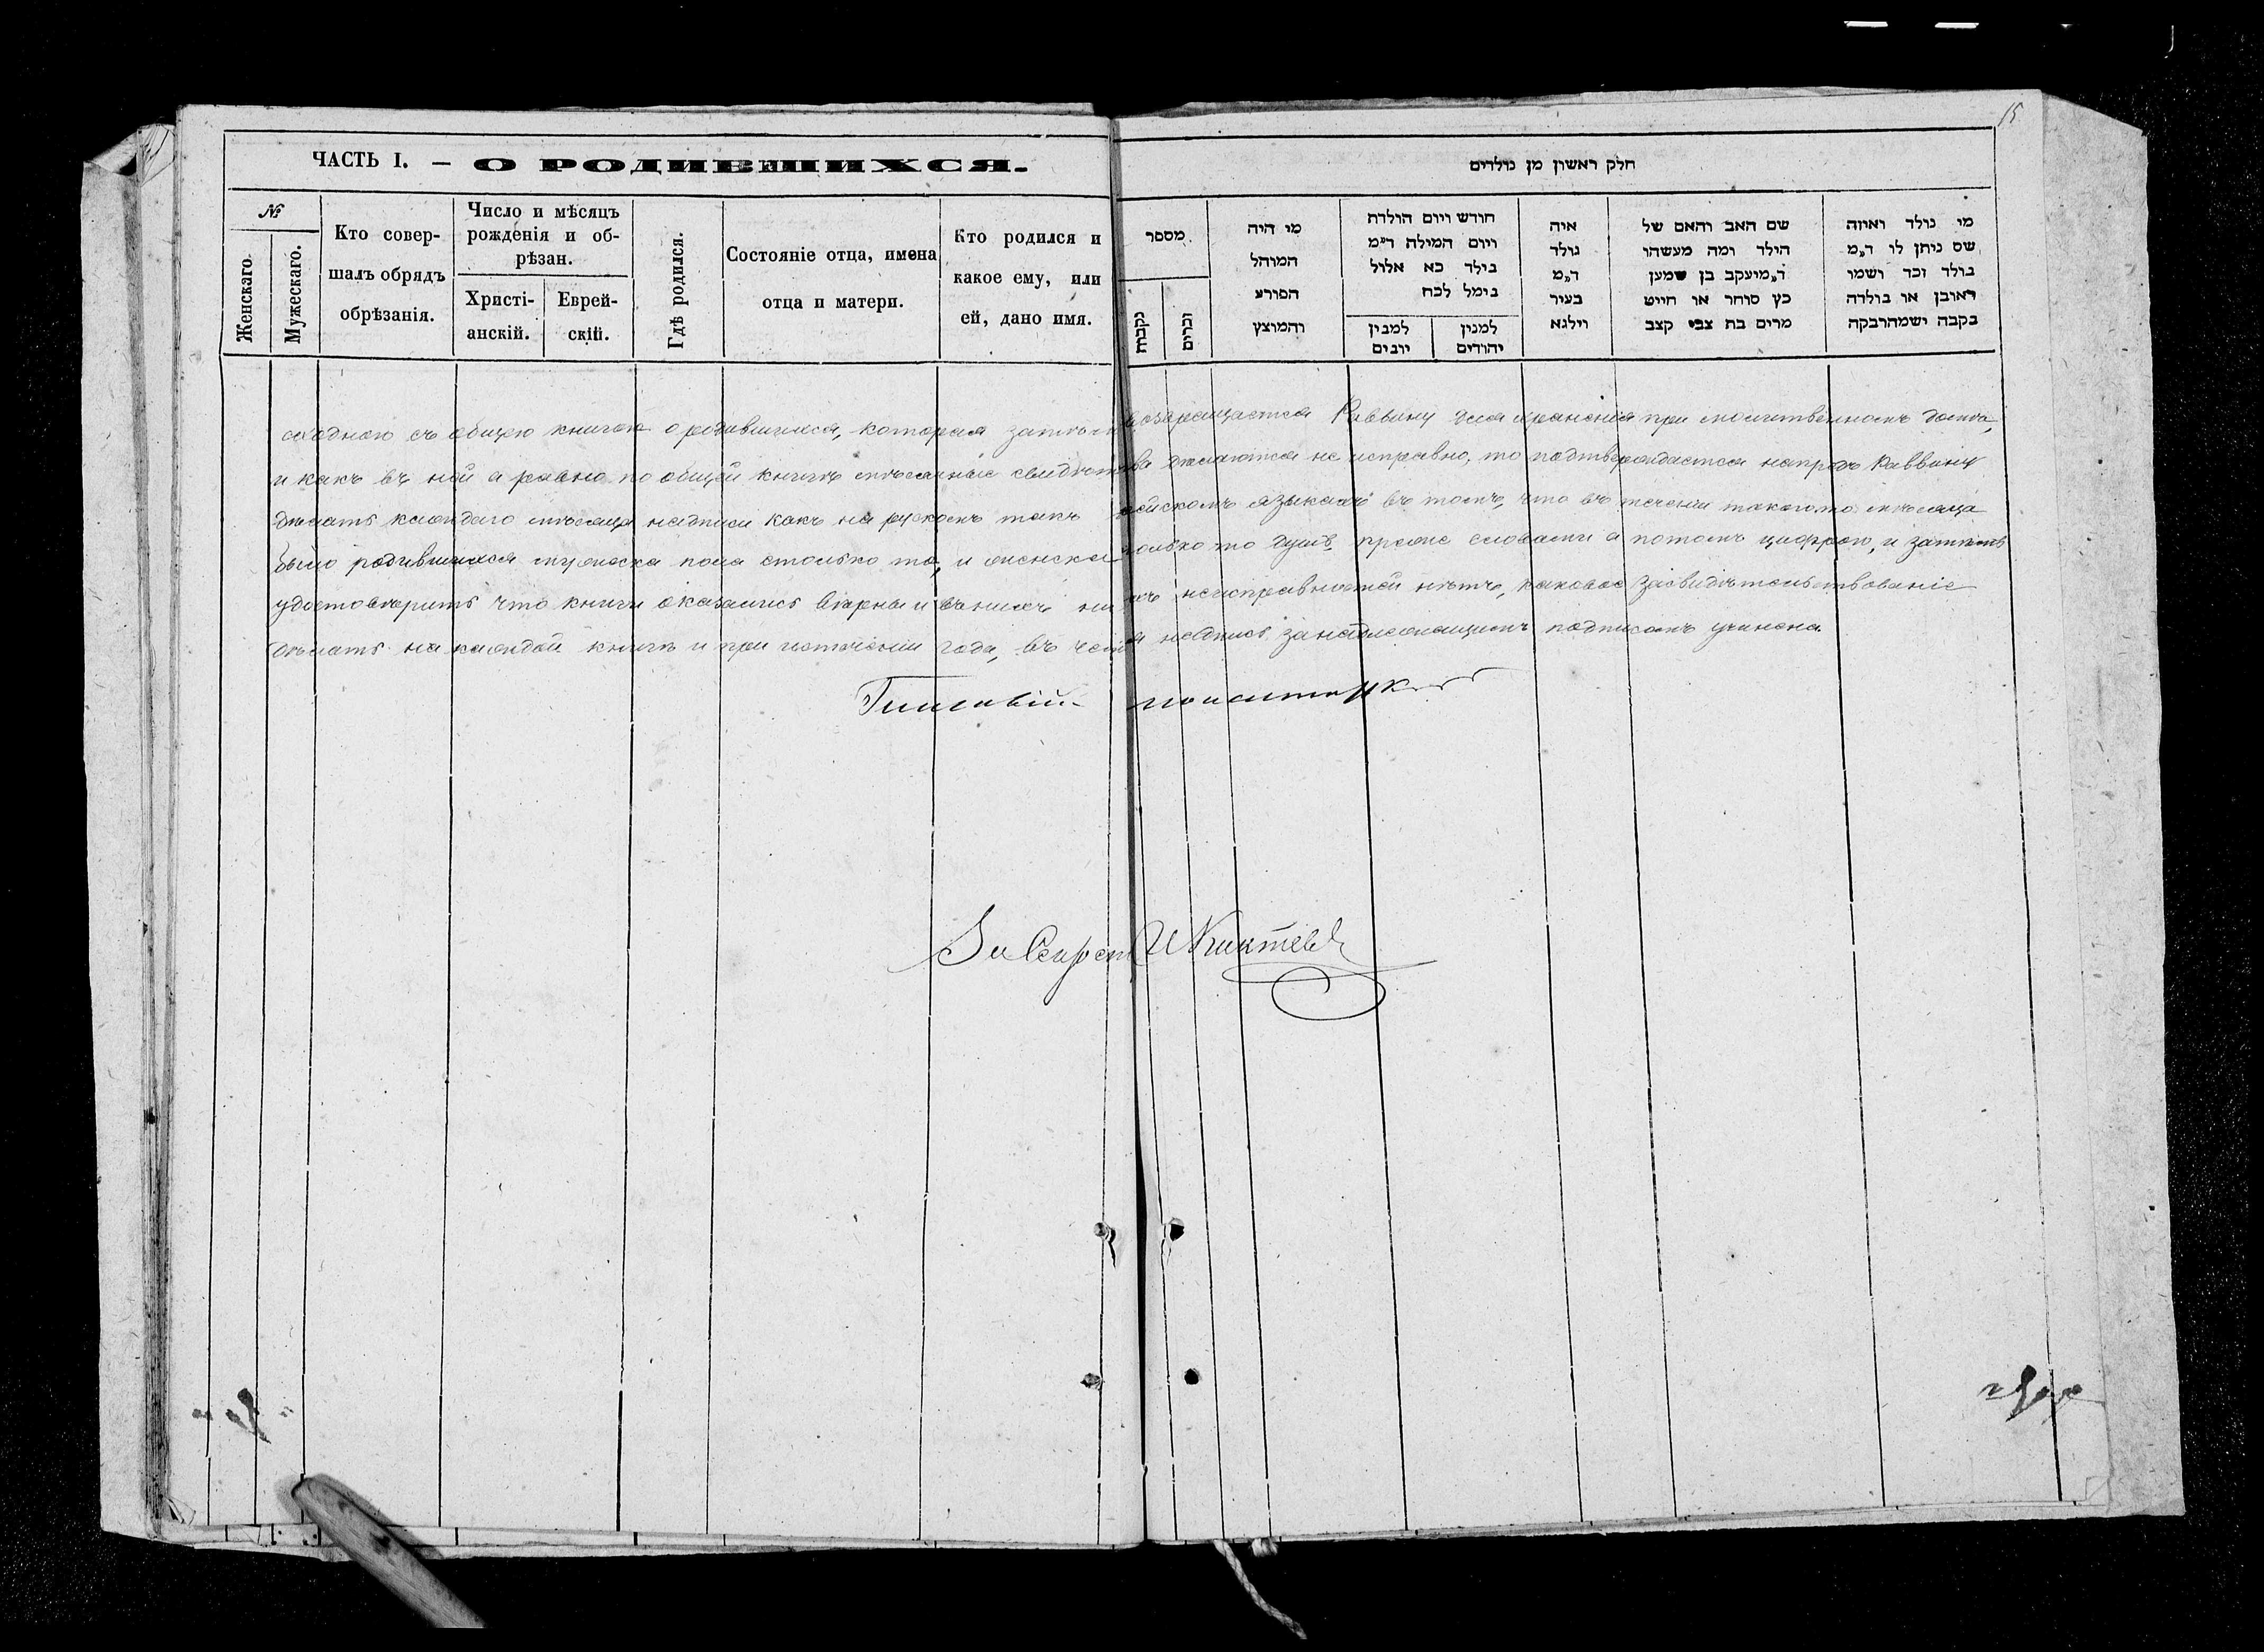 15
ЧАСТЬ I. — О РОДИВШИХСЯ.
№
Женскаго.
Мужескаго.
Кто совер-
шалъ обрядъ
обрѣзанія.
Число и мѣсяцъ
рожденія и об-
рѣзан.
Христі-
анскій.
Еврей-
скій.
Гдѣ родился.
Состояніе отца, имена
отца и матери.
Кто родился и
какое ему, или
ей, дано имя.
חלק ראשון מן נולדים
מספר
נקבות
זכרים
מי היה
המוהל
הפורע
והמוצץ
חודש ויום הולדת
ויום המילה ד״מ
בילד כא אלול
בימל לכח
למנין
יובים
למנין
יהודים
איה
נולד
ד״מ
בעיר
וילנא
שם האב והאם של
הילד ומה מעשהו
ד״מ יעקב בן שמען
כץ סוחר או חייט
מרים בת צבי קצב
מי נולד ואיזה
שם ניתן לו ד״מ
בולד זכר ושמו
ראובן או בולדה
בקבה ישמה רבקה
сходною съ общею книгою о родившихся, которая возвращается Раввину для храненія при молитвенномъ домѣ,
и какъ въ ней а равно по общей книгѣ мѣсячные дѣлаются не исправно, то подтверждается Раввину
дѣлать каждаго мѣсяца надписи какъ на рускомъ такъ языкахъ въ томъ, что въ теченіи такого то мѣсяца
было родившихся мужеска пола столько то, и женска столько то душъ, прежде словами а потомъ цифрою, и затѣмъ
удостовѣрить что книги оказались вѣрны и въ нихъ неисправностей нѣтъ, каковое засвидѣтельствованіе
дѣлать на каждой книгѣ и при истеченіи года, въ чемъ и надпись за надлежащимъ подписомъ учинена.
За Секрет И Киктевъ